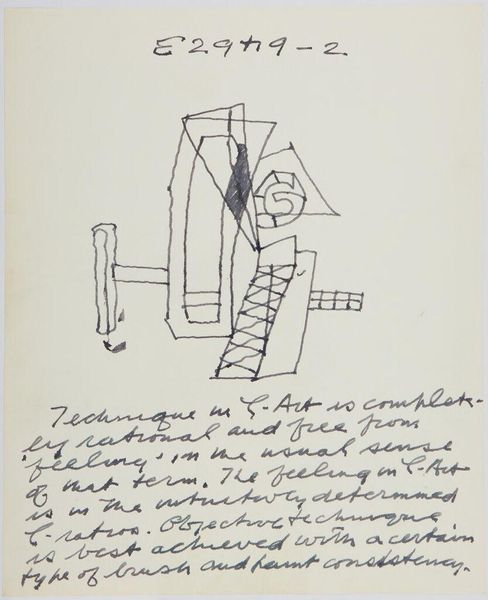 E29+19-2
G
Technique in G-Art is complete-
ly rational and free from
'feeling' in the usual sense
of that term. The feeling in G-Art
is in the intuitively determined
G-ratios. Objective technique
is best achieved with a certain
type of brush and paint consistency.